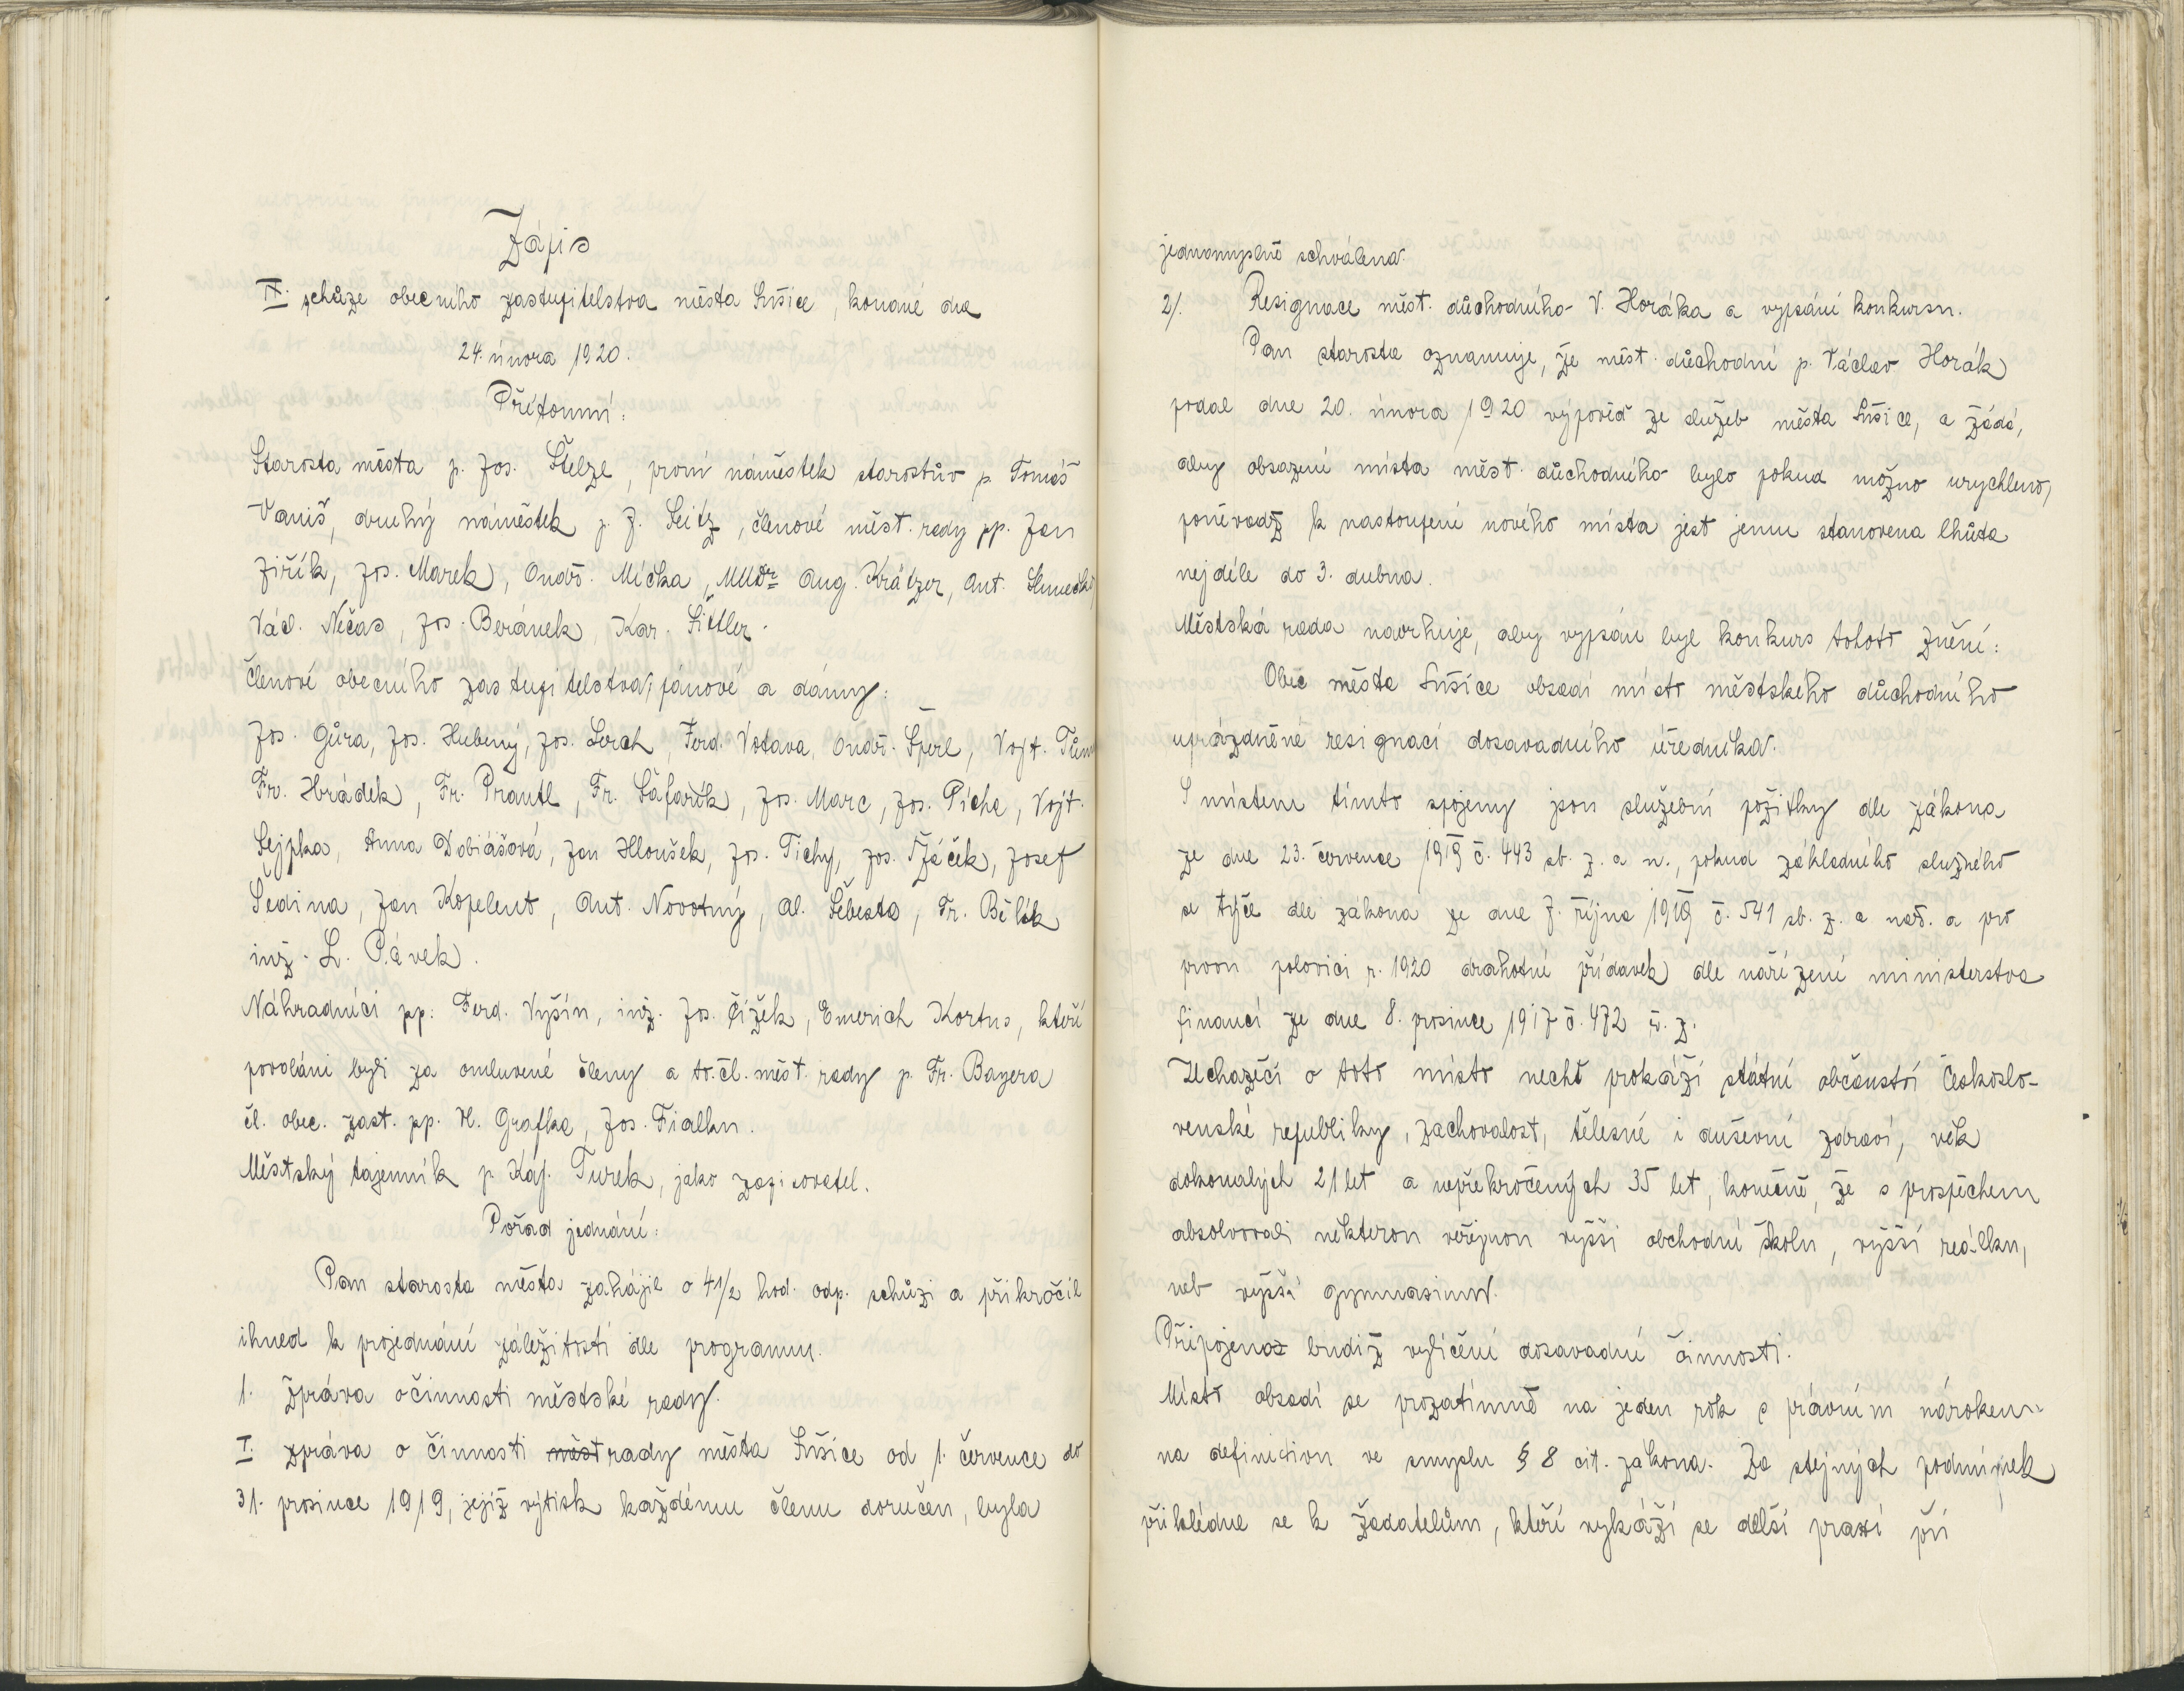 Zápis
IX. schůze obecního zastupitelstva města Sušice, konané dne
24. února 1920.
Přítomni:
Starosta města p. Jos. Štelze, první náměstek starostův p. Tomáš
Vaniš, druhý náměstek p. J. Seitz, členové měst. rady pp. Jan
Jiřík, Jos. Marek, Ondř. Mička, MUDr. Aug. Krátzer, Ant.
Václ. Nečas, Jos. Beránek, Kar. Šittler.
Členové obecního zastupitelstva, pánové a dámy:
Jos. Gůra, Jos. Hubený, Jos. Lerch, Ferd. Votava, Ondř. Šperl, Vojt.
Fr. Hrádek, Fr. Prantl, Fr. Šafařík, Jos. Marc, Jos. Pícha, Vojt.
Šejpka, Anna Dobiášová, Jan Hloušek, Jos. Tichy, Jos. Žáček, Josef
Šedina, Jan Kopelent, Ant. Novotný, Al. Šebesta, Fr. Bělík
inž. L. Pávek.
Náhradníci pp. Ferd. Vyšín, inž. Jos. Čížek, Emerich Kortus, kteří
povoláni byli za omluvené členy a to: čl. měst. rady p. Fr. Bayera
čl. obec. zast. pp. H. Grafka, Jos. Fialku.
Městský tajemník p. Kaj. Turek, jako zapisovatel.
Pořad jednání:
Pan starosta města zahájil o 4 1/2 hod. odp. schůzi a přikročil
ihned k projednání záležitostí dle programu.
1. Zpráva o činnosti městské rady.
I. zpráva o činnosti měst rady města Sušice od 1. července do
31. prosince 1919, jejíž výtisk každému členu doručen, byla
jednomyslně schválena.
2/. Resignace měst. důchodního V. Horáka a vypsání konkursu.
Pan starosta oznamuje, že měst. důchodní p. Václav Horák
podal dne 20. února 1920 výpověď ze služeb města Sušice, a žádá,
aby obsazení místa měst. důchodního bylo pokud možno urychleno,
poněvadž k nastoupení nového místa jest jemu stanovena lhůta
nejdéle do 3. dubna.
Městská rada navrhuje, aby vypsán byl konkurs tohoto znění:
Obec města Sušice obsadí místo městského důchodního
uprázdněné resignací dosavadního úředníka.
S místem tímto spojeny jsou služební požitky dle zákona
ze dne 23. července 1919 č. 443 sb. z. a n., pokud základního služného
se týče dle zákona ze dne 7. října 1919 č. 541 sb. z. a nař. a pro
prvou polovici r. 1920 drahotní přídavek dle nařízení ministerstva
financí ze dne 8. prosince 1917 č. 472 ř. z.
Uchazeči o toto místo nechť prokáží státní občanství Českoslo-
venské republiky, zachovalost, tělesné i duševní zdraví, věk
dokonalých 21 let a nepřekročených 35 let, konečně, že s prospěchem
absolvovali některou veřejnou vyšší obchodní školu, vyšší reálku,
neb vyšší gymnasium.
Připojeno budiž vylíčení dosavadní činnosti.
Místo obsadí se prozatímně na jeden rok s právním nárokem
na definitivu ve smyslu § 8 cit. zákona. Za stejných podmínek
přihlédne se k žadatelům, kteří vykáží se delší praxí při